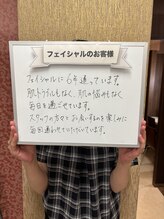 フェイシャルのお客様
フェイシャルに6年通っています。
肌トラブルもなく、肌の悩みもなく
毎日を過ごせています。
スタッフの方々とお会いするのを楽しみに
毎回通わせていただいています。